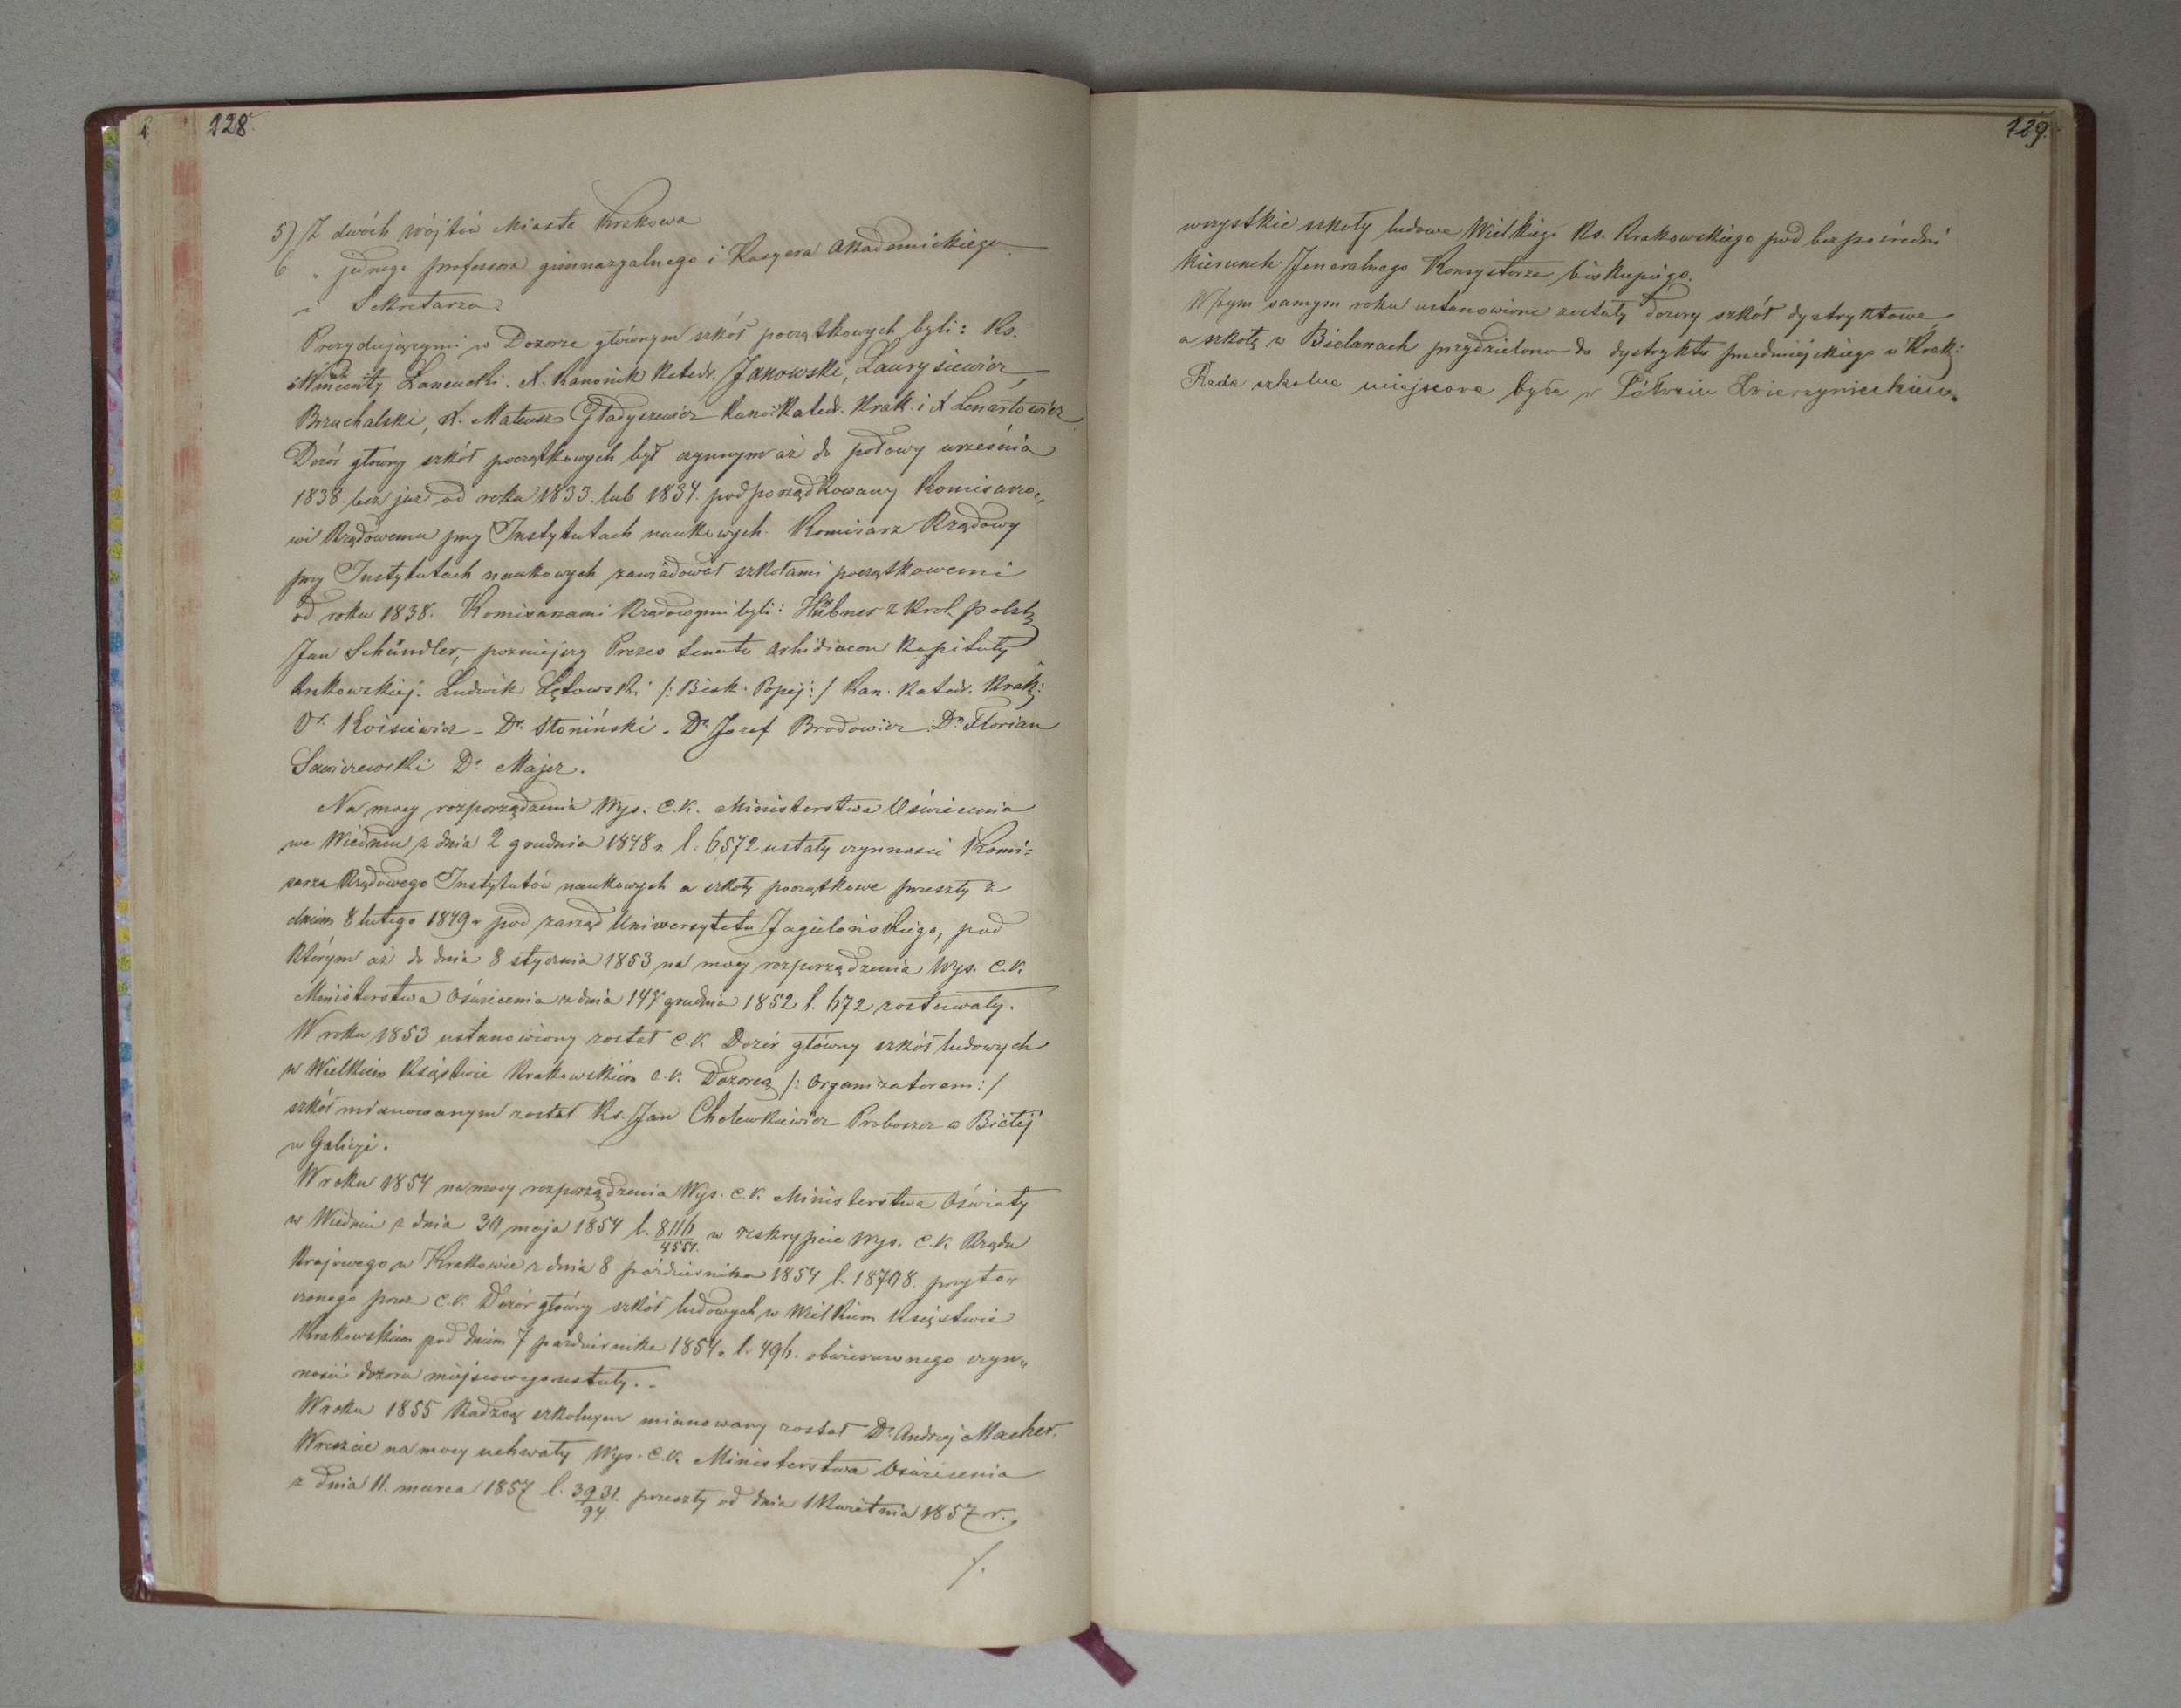 128.
5) Z dwóch wójtów Miasta Krakowa
6 „ jednego professora gimnazyalnego i Kasyera Akademickiego
i Sekretarza.
Prezydującymi w Dozorze głównym szkół początkowych byli: Ks.
Wincenty Łańcucki. X. Kanonik Katedr. Janowski, Laurysiewicz,
Bruchalski, X. Mateusz Gładyszewicz Kanon Katedr. Krak. i X Lenartowicz
Dozór główny szkół początkowych był czynnym aż do połowy września
1838. lecz już od roku 1833. lub 1834. podporządkowany Komisarzo„
wi Rządowemu przy Instytutach naukowych. Komisarz Rządowy
przy Instytutach naukowych zawiadował szkołami początkowemi
od roku 1838. Komisarzami Rządowymi byli: Hübner z Krol. polsk:
Jan Schündler, pozniejszy Prezes Senatu Arhidiacon Kapituły
Krakowskiej. Ludwik Łętowski /: Bisk. Popej :/ Kan. Katedr. Krak:
Dr. Koisiewicz - Dr. Słoniński - Dr Jozef Brodowicz. Dr. Florian
Sawiczewski Dr Majer.
Na mocy rozporządzenia Wys. C.K. Ministerstwa Oświecenia
we Wiedniu z dnia 2 grudnia 1848 r. l. 6572 ustały czynności Komi=
sarza Rządowego Instytutów naukowych a szkoły początkowe przeszły z
dniem 8 lutego 1849 r pod zarząd Uniwersytetu Jagielońskiego, pod
którym aż do dnia 8 stycznia 1853 na mocy rozporządzenia Wys. C.K.
Ministerstwa Oświecenia z dnia 14 grudnia 1852 l. 672 zostawały.
W roku 1853 ustanowiony został C.K. Dozór główny szkół ludowych
w Wielkiem Księstwie Krakowskiém C.K. Dozorcą /: Organizatorem :/
szkół mianowanym został Ks. Jan Chelewkiewicz Proboszcz w Biełej
w Galicyi.
W roku 1854 na mocy rozporządzenia Wys. C.K. Ministerstwa Oświaty
w Wiedniu z dnia 30 maja 1854 l. 8116/4551. w reskrypcie Wys. C.K. Rządu
Krajowego w Krakowie z dnia 8 października 1854 l. 18708. przyto„
czonego przez C.K. Dozór główny szkół ludowych w Wielkiem Księstwie
Krakowskiem pod dniem 7 października 1854. l. 496. obwieszczonego czyn„
ności dozoru miejscowego ustały. -
W roku 1855 Radzcą szkolnym mianowany został Dr Andrzej Macher.
Wreszcie na mocy uchwały Wys. C.K. Ministerstwa Oświecenia
z dnia 11. marca 1857 l. 3931/94 przeszły od dnia 1 Kwietnia 1857 r.
/.
129.
wszystkie szkoły ludowe Wielkiego Ks. Krakowskiego pod bezpośredni
kierunek Jeneralnego Konsystorza biskupiego.
W tym samym roku ustanowione zostały Dozory szkół dystryktowe
a szkołę w Bielanach przydzielono do dystryktu przedmiejskiego w Krak:
Rada szkolna miejscowa była w Półwsiu Zwierzynieckiem.